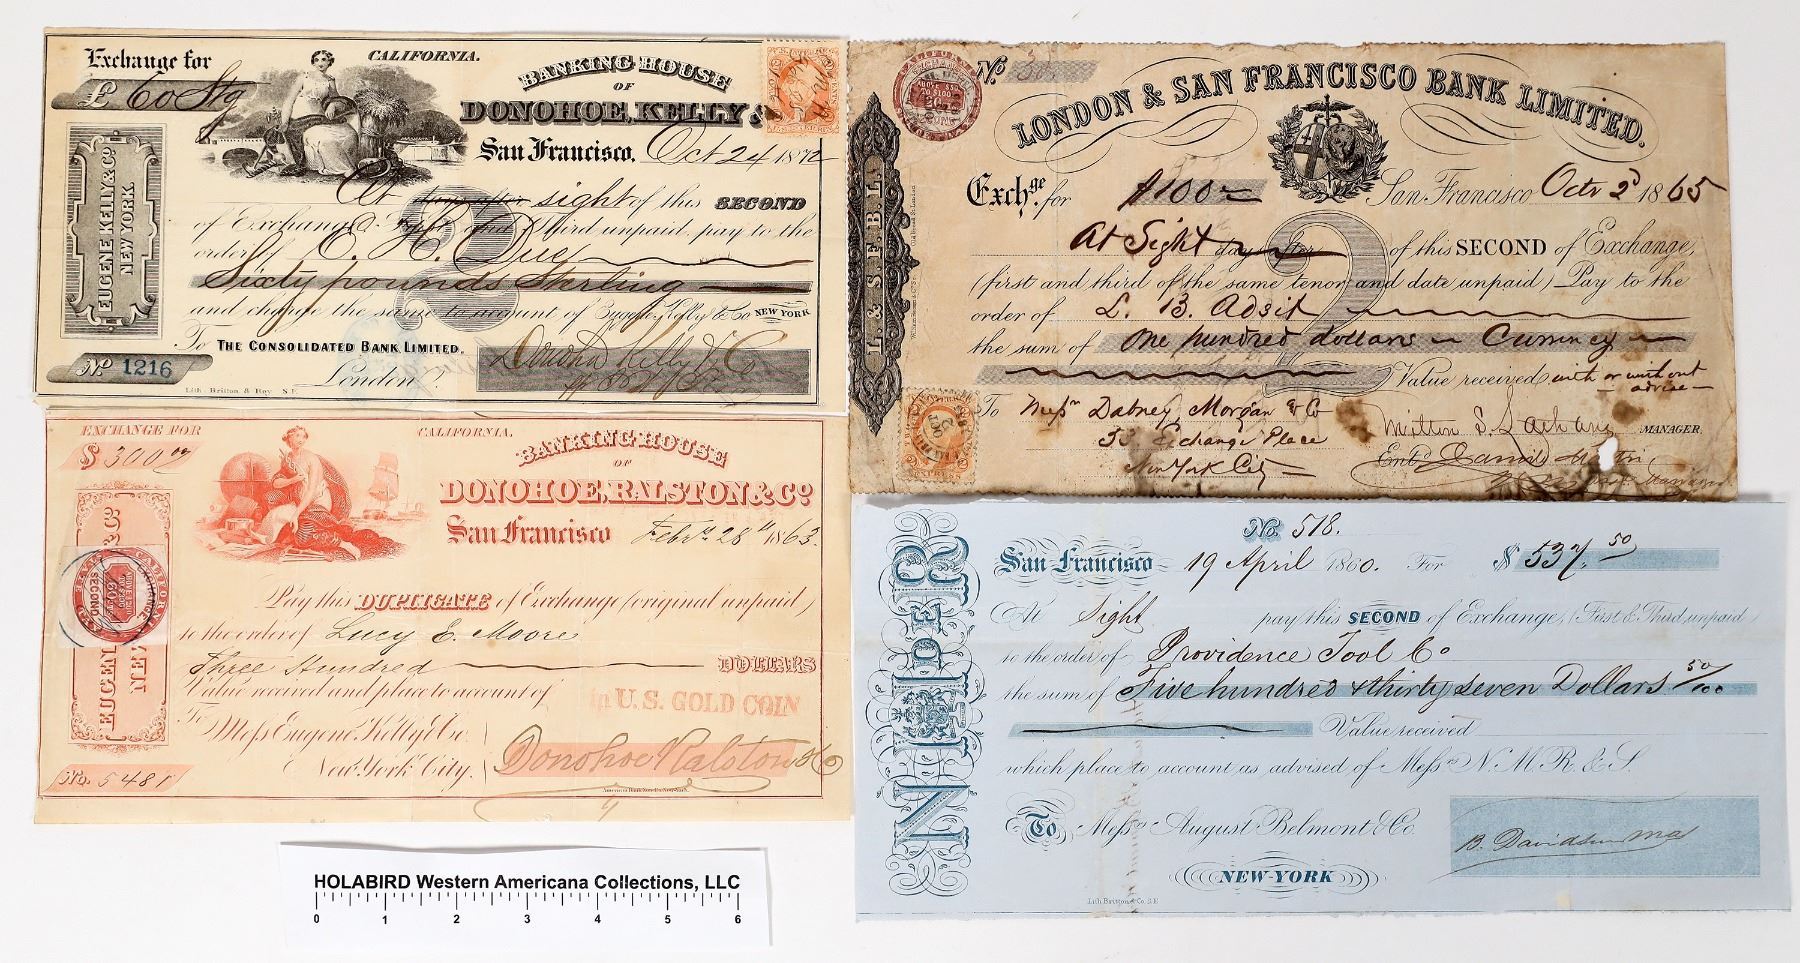 Exchange for
CALIFORNIA.
£ 60 Stg
BANKING HOUSE
OF
DONOHOE, KELLY &
San Francisco, Oct 24 1872
At sight of this SECOND
of Exchange First and Third unpaid, pay to the
order of C. H. Duey
Sixty pounds Sterling
and charge the same to account of Eugene Kelly & Co NEW YORK
To THE CONSOLIDATED BANK, LIMITED.
London.
Donohoe Kelly & Co
No 1216
Lith. Britton & Rey S.F.
EUGENE KELLY & Co
NEW YORK.
EXCHANGE FOR
CALIFORNIA.
$ 300 00
BANKING HOUSE
OF
DONOHOE, RALSTON & Co
San Francisco Febry 28th 1863.
Pay this DUPLICATE of Exchange (original unpaid)
to the order of Lucy E. Moore
Three Hundred DOLLARS
Value received and place to account of
in U.S. GOLD COIN
To Mess Eugene Kelly & Co.
New York City.
Donohoe Ralston & Co
No. 5481
American Bank Note Co. New York.
No 30
LONDON & SAN FRANCISCO BANK LIMITED.
Exchge for $100
San Francisco Octr 2d 1865
At Sight days after of this SECOND of Exchange,
(first and third of the same tenor and date unpaid) Pay to the
order of L. B. Adsit
the sum of One hundred dollars Currency
Value received with or without
advise
To Messrs Dabney, Morgan & Co
53 Exchange Place
New York City
Milton S. Latham MANAGER.
Entd
L. & S. F. B. L.
No. 518.
San Francisco 19 April 1860. For $ 537.50
At Sight pay this SECOND of Exchange, (First & Third unpaid)
to the order of Providence Tool Co
the sum of Five hundred & thirty seven Dollars 50/100
Value received
which place to account as advised of Messrs N. M. R. & S.
To Messrs August Belmont & Co.
NEW-YORK
B. Davidson
Lith Britton & Co. S.F.
HOLABIRD Western Americana Collections, LLC
0 1 2 3 4 5 6